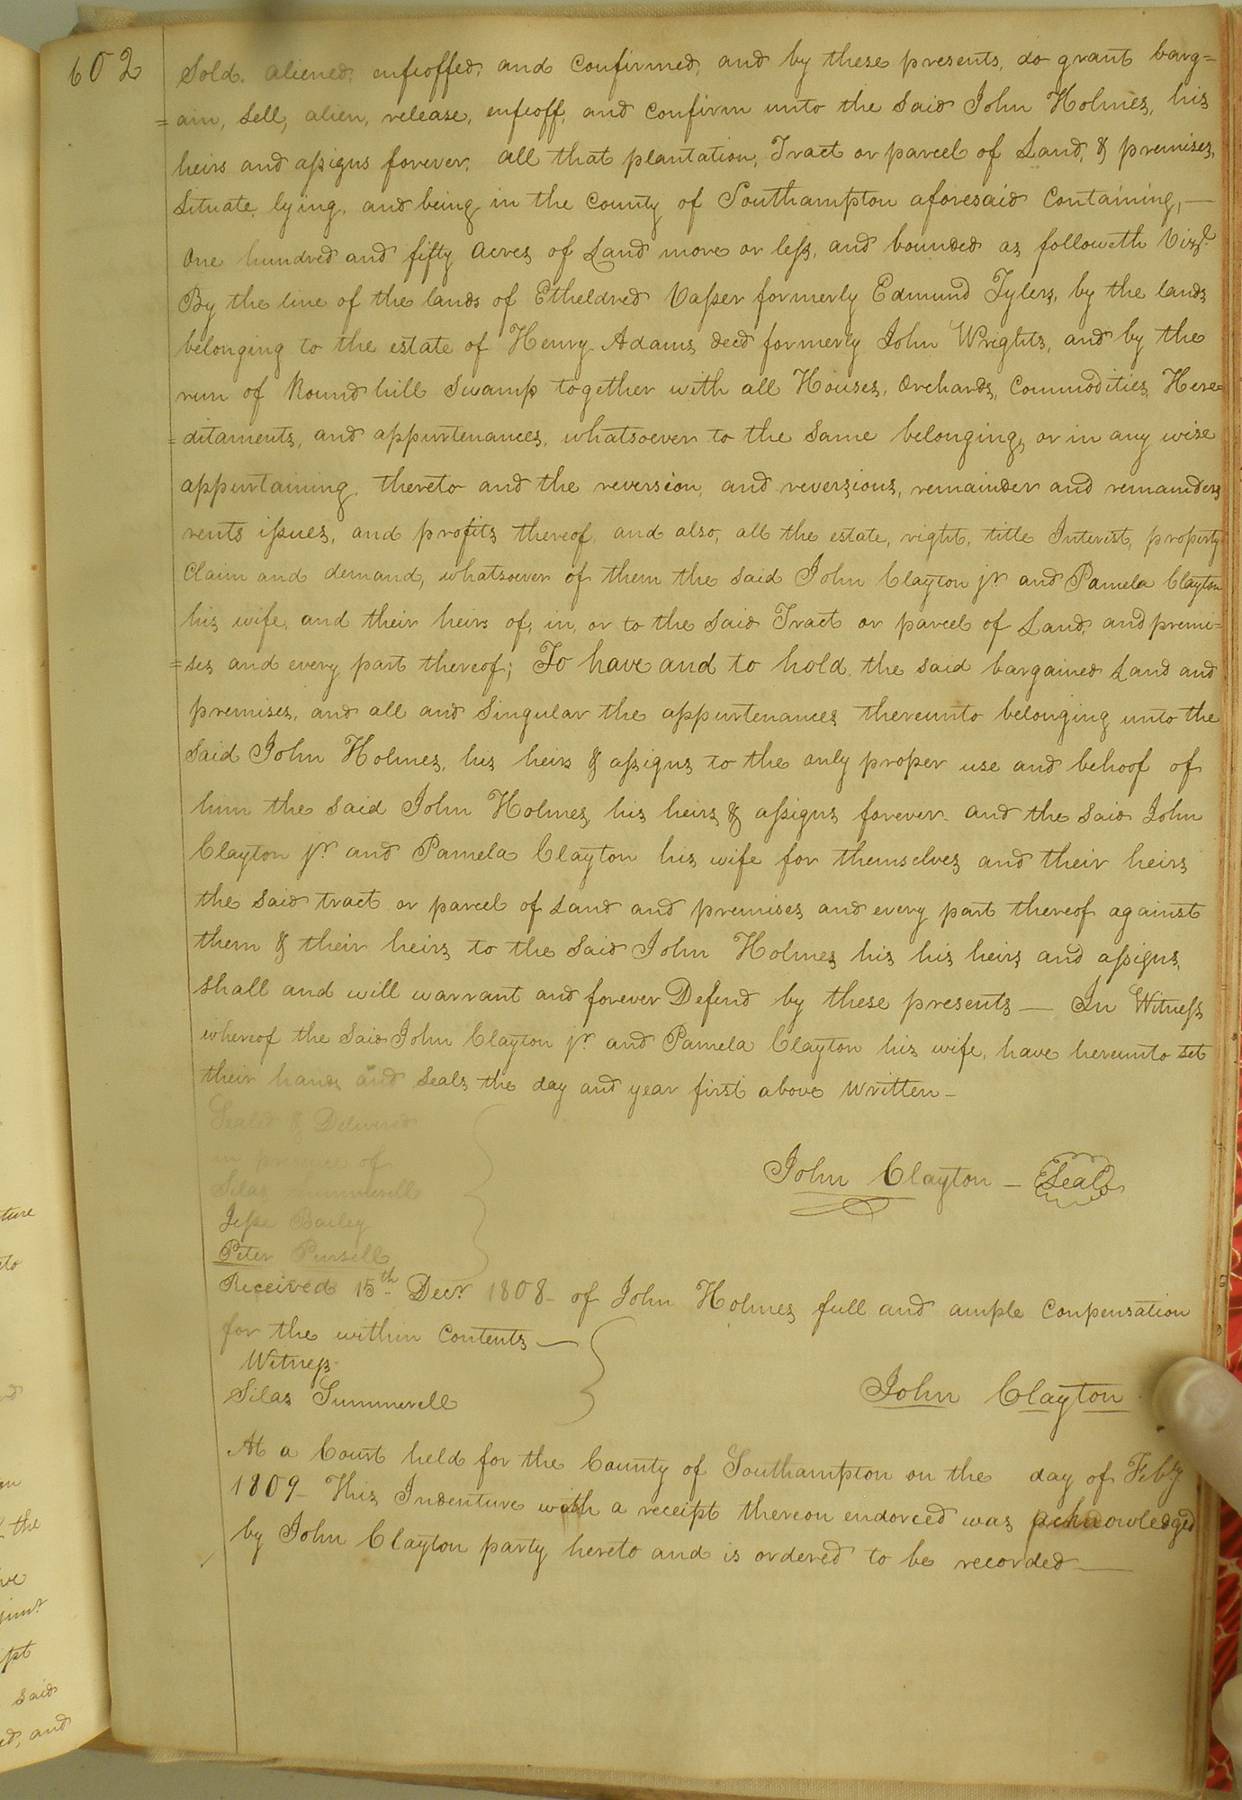 602
Sold, aliened, enfeoffed, and Confirmed, and by these presents, do grant barg=
=ain, Sell, alien, release, enfeoff, and Confirm unto the Said John Holmes, his
heirs and assigns forever, all that plantation, Tract or parcel of Land, & premises,
Situate, lying, and being in the County of Southampton aforesaid Containing,—
One hundred and fifty Acres of Land more or less, and bounded as followeth Vizt.
By the line of the lands of Etheldred Vasser formerly Edmund Tylers, by the lands
belonging to the estate of Henry Adams decd formerly John Wrights, and by the
run of Round hill Swamp together with all Houses, Orchards, Commodities, Here=
=ditaments, and appurtenances, whatsoever to the Same belonging, or in any wise
appurtaining, thereto and the reversion, and reversions, remainder and remainders
rents issues, and profits thereof, and also, all the estate, right, title Interest, property
Claim and demand, whatsoever of them the Said John Clayton jr. and Pamela Clayton
his wife, and their heirs of, in, or to the Said Tract or parcel of Land, and premi=
=ses and every part thereof; To have and to hold, the said bargained Land and
premises, and all and Singular the appurtenances thereunto belonging unto the
Said John Holmes, his heirs & assigns to the only proper use and behoof of
him the Said John Holmes, his heirs & assigns forever. and the Said John
Clayton jr. and Pamela Clayton his wife for themselves and their heirs
the Said tract or parcel of Land and premises and every part thereof against
them & their heirs to the Said John Holmes his his heirs and assigns,
Shall and will warrant and forever Defend by these presents — In Witness
whereof the Said John Clayton jr. and Pamela Clayton his wife, have hereunto Set
their hands and Seals the day and year first above Written —
Sealed & Delivered
in presence of
Silas Summerell
John Clayton — Seal
Jesse Bailey
Peter Pursell
Received 15th Decr. 1808 — of John Holmes full and ample Conpensation
for the within Contents —
Witness
Silas Summerell
John Clayton
At a Court held for the County of Southampton on the day of Feby
1809 — This Indenture with a receipt thereon endorced was acknowledged
by John Clayton party hereto and is ordered to be recorded —